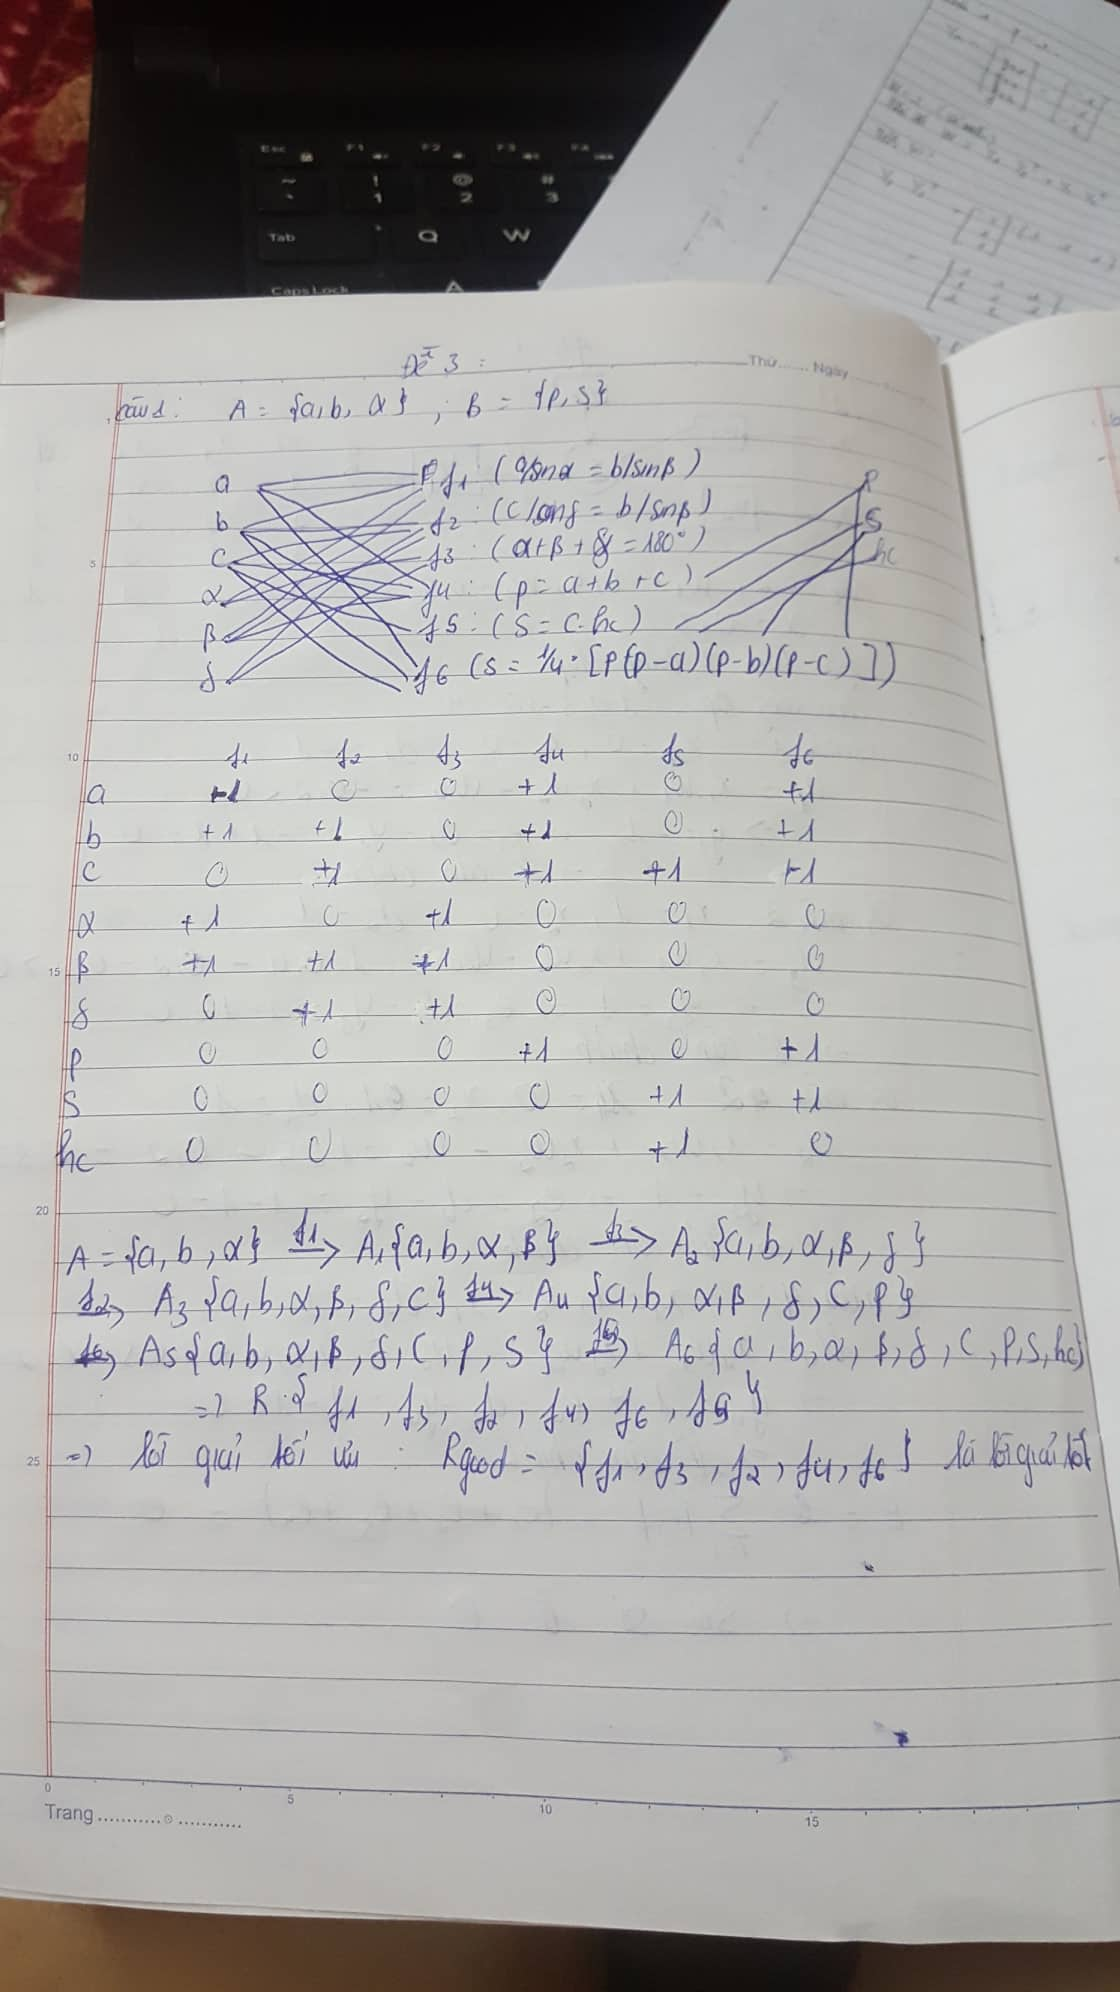 Esc F1 F2 F3 F4
~ ! @ #
` 1 2 3
Tab Q W
Caps Lock A
Đề 3 :
Thứ ...... Ngày ............
câu 1: A = {a, b, α} ; B = {p, S}
a f1 : (a/sinα = b/sinβ) P
b f2 : (c/sinδ = b/sinβ) S
c f3 : (α+β+δ = 180°) hc
α f4 : (p = a+b+c)
β f5 : (S = c.hc)
δ f6 (S = 1/4 . [p(p-a)(p-b)(p-c)])
f1 f2 f3 f4 f5 f6
a +1 0 0 +1 0 +1
b +1 +1 0 +1 0 +1
c 0 +1 0 +1 +1 +1
α +1 0 +1 0 0 0
β +1 +1 +1 0 0 0
δ 0 +1 +1 0 0 0
p 0 0 0 +1 0 +1
S 0 0 0 0 +1 +1
hc 0 0 0 0 +1 0
A = {a, b, α} f1→ A1{a, b, α, β} f3→ A2{a, b, α, β, δ}
f2→ A3{a, b, α, β, δ, c} f4→ A4 {a, b, α, β, δ, c, p}
f6→ A5{a, b, α, β, δ, c, p, S} f5→ A6 {a, b, α, β, δ, c, p, S, hc}
=> R {f1, f3, f2, f4, f6, f5}
=> lời giải tối ưu : Rgood = {f1, f3, f2, f4, f6} là lời giải tốt
5
10
15
20
25
0 5 10 15
Trang ........................